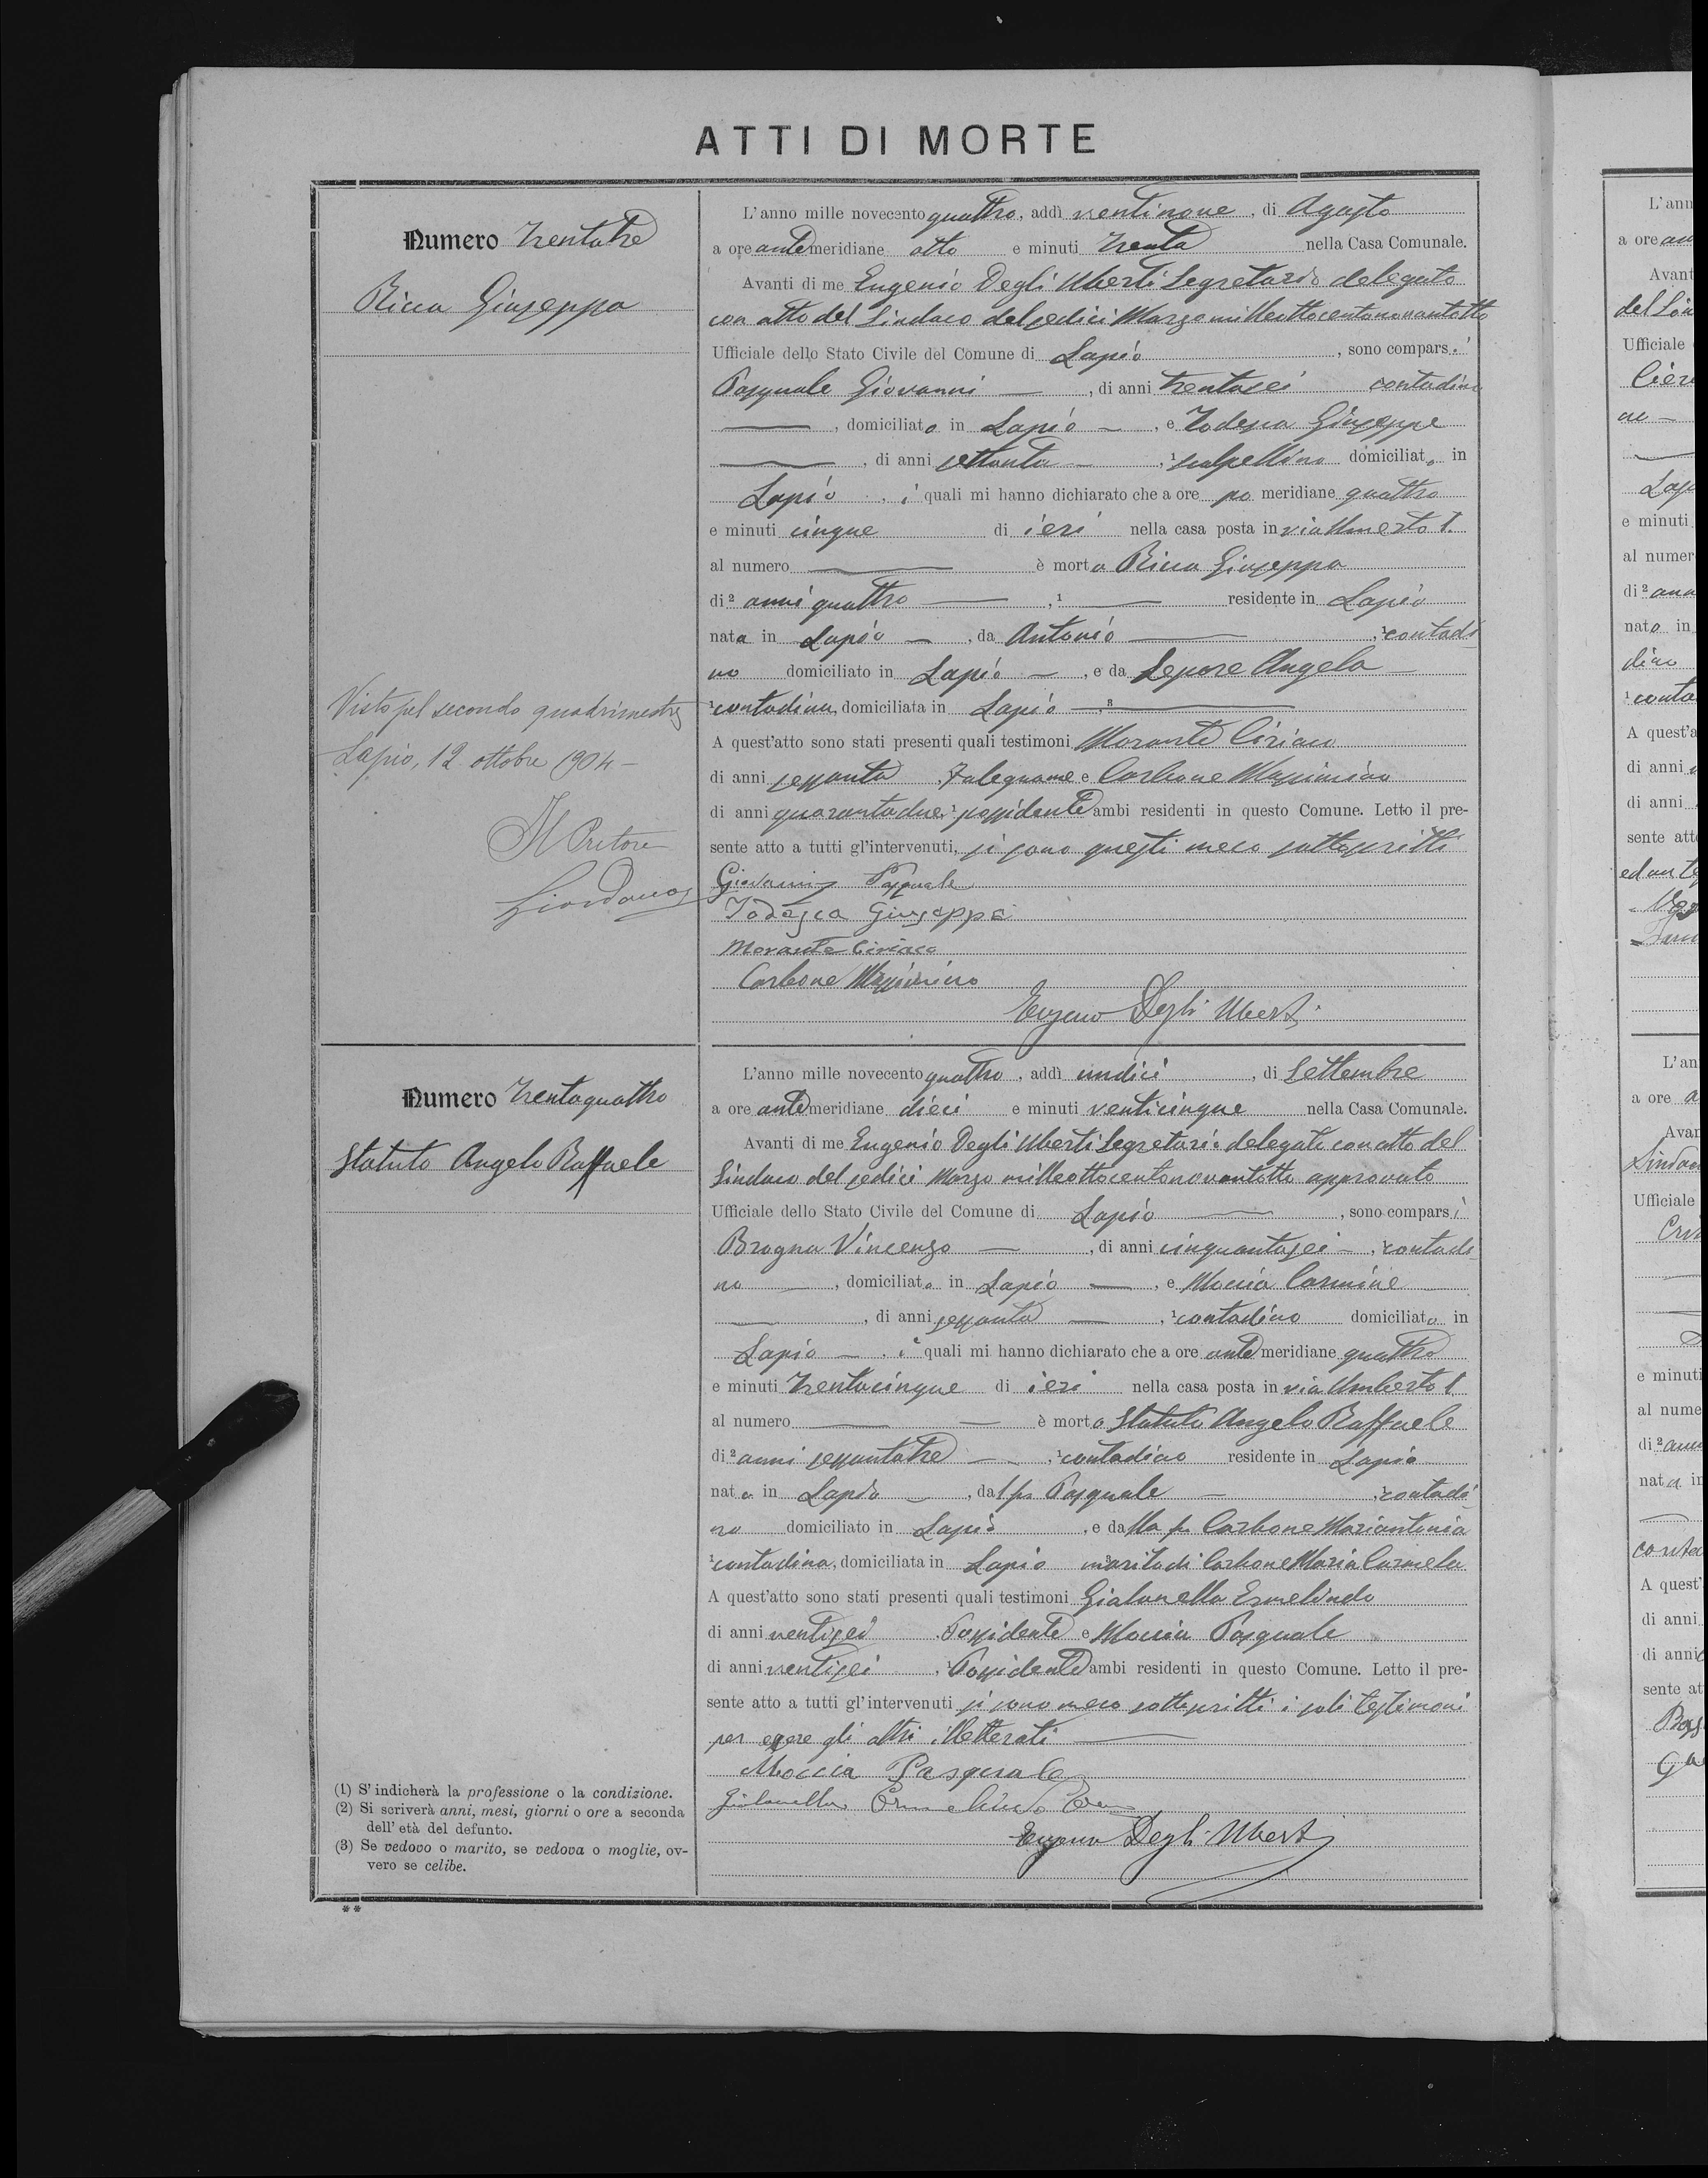 ATTI DI MORTE
Numero Trentatre
Ricca Giuseppa
Visto pel secondo quadrimestre
Lapio, 12 ottobre 1904 -
Il Pretore
Giordano
L'anno mille novecento quattro, addì ventinove, di Agosto
a ore antemeridiane otto e minuti trenta nella Casa Comunale.
Avanti di me Eugenio Degli Uberti Segretario delegato
con atto del Sindaco del sedici Marzo milleottocentonovantotto
Ufficiale dello Stato Civile del Comune di Lapio, sono comparsi
Pasquale Giovanni —, di anni trentasei contadino
—, domiciliato in Lapio —, e Todesca Giuseppe
—, di anni settanta —, 1 scalpellino domiciliato in
Lapio, i quali mi hanno dichiarato che a ore po meridiane quattro
e minuti cinque di ieri nella casa posta in via Umerto I.
al numero — è morta Ricca Giuseppa
di 2 anni quattro —, 1 — residente in Lapio
nata in Lapio —, da Antonio —, 1 contadi
no domiciliato in Lapio —, e da Lepore Angela —
1 contadina, domiciliata in Lapio —, 3 —
A quest'atto sono stati presenti quali testimoni Morante Ciriaco
di anni sessanta, falegname e Carbone Massimino
di anni quarantadue, 1 possidente ambi residenti in questo Comune. Letto il pre-
sente atto a tutti gl'intervenuti, si sono questi meco sottoscritti
Giovanni Pasquale
Todesca Giuseppe
Morante Ciriaco
Carbone Massimino
Eugenio Degli Uberti
Numero Trentaquattro
Statuto Angelo Raffaele
L'anno mille novecento quattro, addì undici, di Settembre
a ore antemeridiane dieci e minuti venticinque nella Casa Comunale.
Avanti di me Eugenio Degli Uberti Segretario delegato con atto del
Sindaco del sedici Marzo milleottocentonovantotto approvato
Ufficiale dello Stato Civile del Comune di Lapio —, sono comparsi
Brogna Vincenzo —, di anni cinquantasei —, 1 contadi
no —, domiciliato in Lapio —, e Moccia Carmine
—, di anni sessanta —, 1 contadino domiciliato in
Lapio —, i quali mi hanno dichiarato che a ore antemeridiane quattro
e minuti trentacinque di ieri nella casa posta in via Umberto I
al numero — — è morto Statuto Angelo Raffaele
di 2 anni sessantatre —, 1 contadino residente in Lapio
nato in Lapio —, dal fu Pasquale —, 1 contadi
no domiciliato in Lapio, e dalla fu Carbone Mariantonia
1 contadina, domiciliata in Lapio marito di Carbone Maria Carmela
A quest'atto sono stati presenti quali testimoni Gialonella Ermelindo
di anni ventisei, Possidente e Moccia Pasquale
di anni ventisei, 1 Possidente ambi residenti in questo Comune. Letto il pre-
sente atto a tutti gl'intervenuti si sono meco sottoscritti i soli testimoni
per essere gli altri illetterati —
Moccia Pasquale
Gialonella Ermelindo
Eugenio Degli Uberti
(1) S'indicherà la professione o la condizione.
(2) Si scriverà anni, mesi, giorni o ore a seconda
dell'età del defunto.
(3) Se vedovo o marito, se vedova o moglie, ov-
vero se celibe.
**